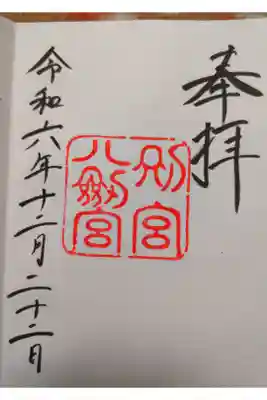 奉拝
別宮
八剱宮
令和六年十二月二十二日